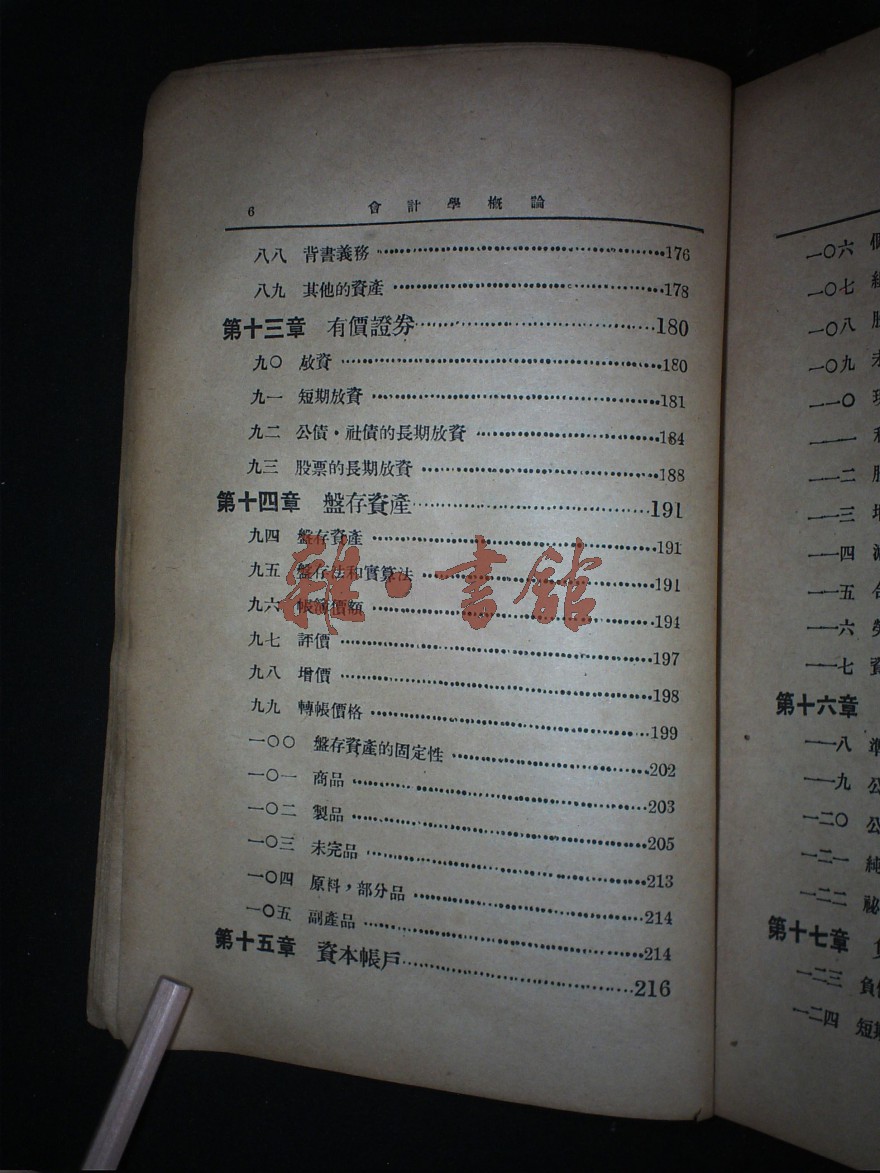 6 會計學概論
八八 背書義務 176
八九 其他的資產 178
第十三章 有價證券 180
九〇 放資 180
九一 短期放資 181
九二 公債·社債的長期放資 184
九三 股票的長期放資 188
第十四章 盤存資產 191
九四 盤存資產 191
九五 盤存法和實算法 191
九六 帳簿價額 194
九七 評價 197
九八 增價 198
九九 轉帳價格 199
一〇〇 盤存資產的固定性 202
一〇一 商品 203
一〇二 製品 205
一〇三 未完品 213
一〇四 原料，部分品 214
一〇五 副產品 214
第十五章 資本帳戶 216
雜·書館
一〇六
一〇七
一〇八
一〇九
一一〇
一一一
一一二
一一三
一一四
一一五
一一六
一一七
第十六章
一一八
一一九 公
一二〇 公
一二一 純
一二二 祕
第十七章
一二三 負
一二四 短期